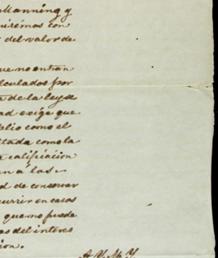 Manning y
uiremos con
del valor de
ue no entran
lculados por
a de la ley de
ad exige que
olio como el
ltada como la
a calificacion
n a las
d de conservar
currir en casos
que no puede
as del interes
ion.